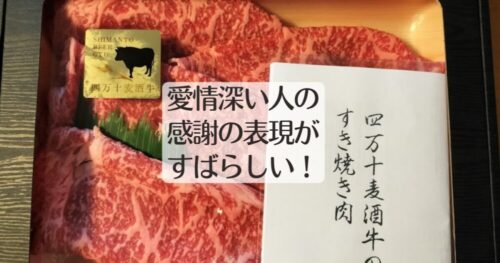 SHIMANTO
BEER
GYU
四万十麦酒牛
愛情深い人の
感謝の表現が
すばらしい！
四万十麦酒牛の
すき焼き肉